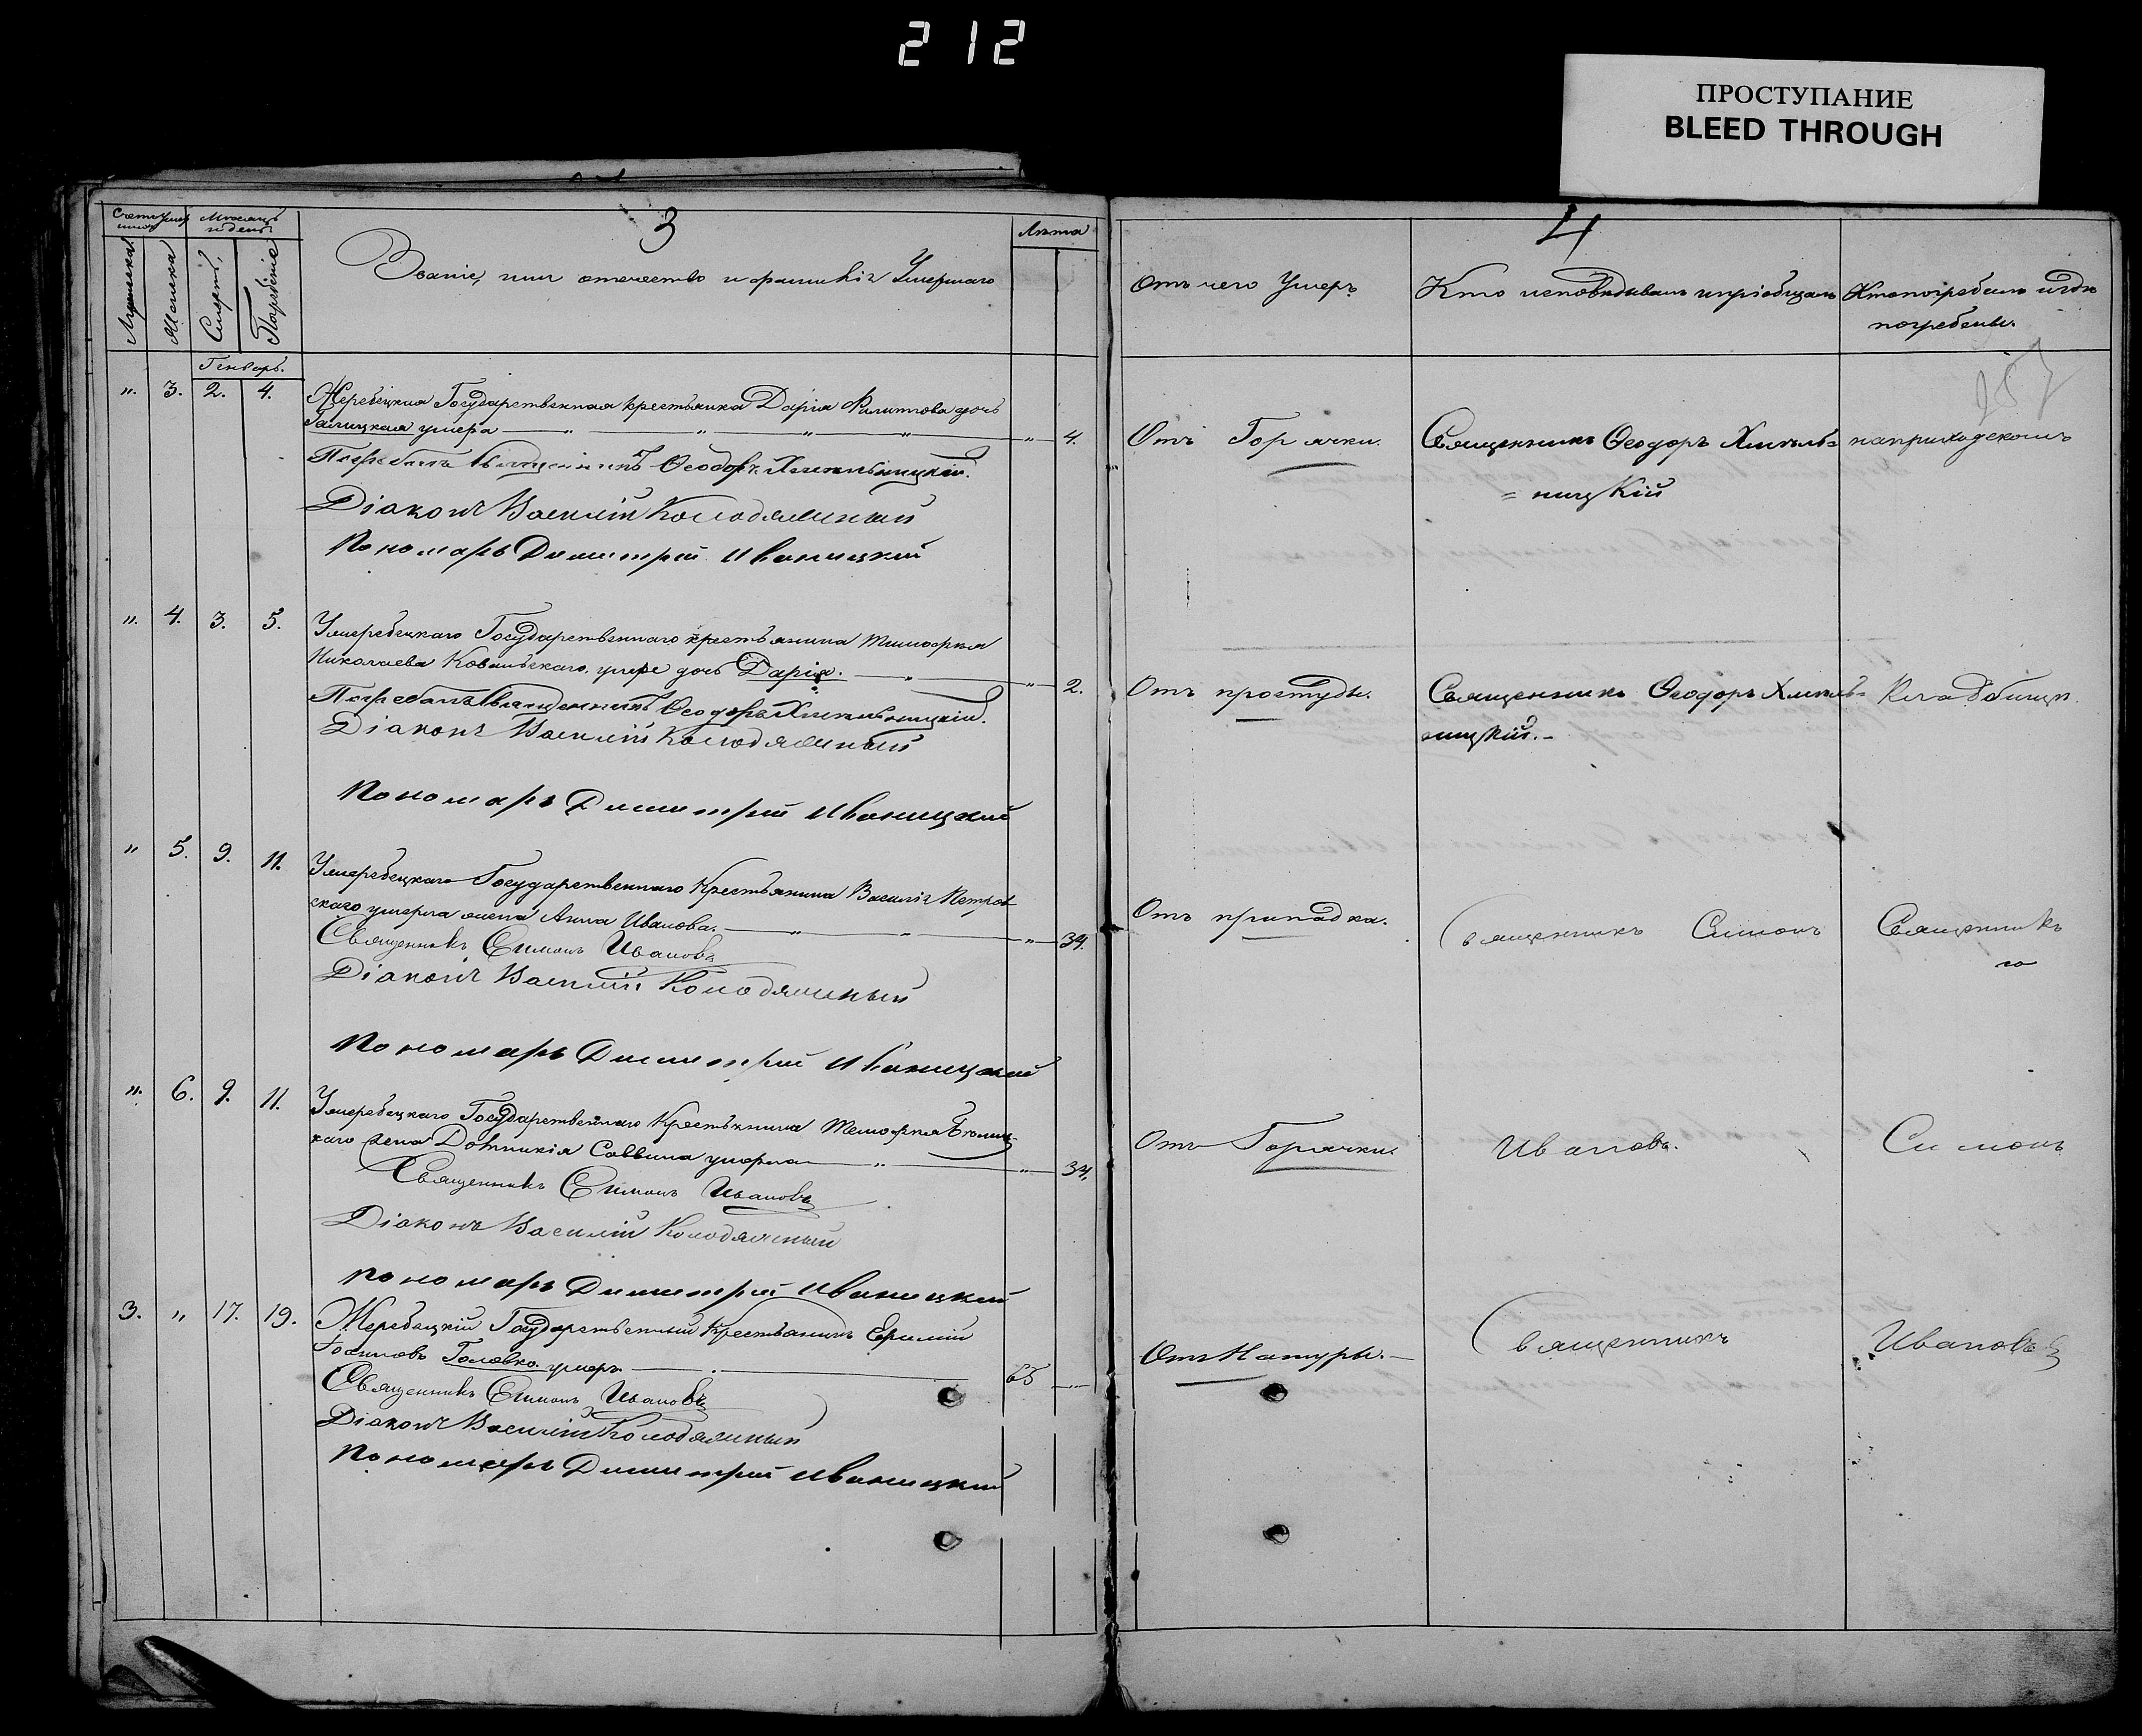 212
ПРОСТУПАНИЕ
BLEED THROUGH
3
4
Мѣсяцъ
и день.
Лѣта
Мужеска.
Женска
Смерти,
Погребенія
Званіе, имя отечество и фамилія Умершаго
Отъ чего Умеръ.
Кто исповѣдывалъ и пріобщалъ
Кто погребалъ и гдѣ
погребены.
257
Генварь.
". 3. 2. 4.
Жеребецкая Государственная крестьянка Дарія Филиппова дочь
Галицкая умера " 4.
Погребалъ Священникъ Ѳеодоръ Хмельницкій.
Діаконъ Василій Колодяжный
Пономарь Димитрій Иваницкій
Отъ Горячки.
Священникъ Ѳеодоръ Хмель=
=ницкій
на приходскомъ
". 4. 3. 5.
Жеребецкаго Государственнаго крестьянина Тимофея
Николаева Ковальскаго, умре дочь Дарія. " 2.
Погребалъ Священникъ Ѳеодоръ Хмельницкій.
Діаконъ Василій Колодяжный
Пономарь Димитрій Иваницкій
Отъ простуды.
Священникъ Ѳеодоръ Хмель=
ницкій.-
Кладбищѣ.
" 5. 9. 11.
Жеребецкаго Государственнаго Крестьянина Василія Петров
скаго умерла жена Анна Иванова. " 34.
Священникъ Симонъ Ивановъ
Діаконъ Василій Колодяжный
Пономарь Димитрій Иваницкій
Отъ припадка.
Священникъ Симонъ
Священникъ
". 6. 9. 11.
Жеребецкаго Государственнаго Крестьянина
каго жена Домникія Саввина умерла " 34.
Священникъ Симонъ Ивановъ
Діаконъ Василій Колодяжный
Пономарь Димитрій Иваницкій
Отъ Горячки.
Ивановъ.
Симонъ
3. " 17. 19.
Жеребецкій Государственный Крестьянинъ
Головко умеръ 65
Священникъ Симонъ Ивановъ
Діаконъ Василій Колодяжный
Пономарь Димитрій Иваницкій
Отъ Натуры.
Священникъ
Ивановъ